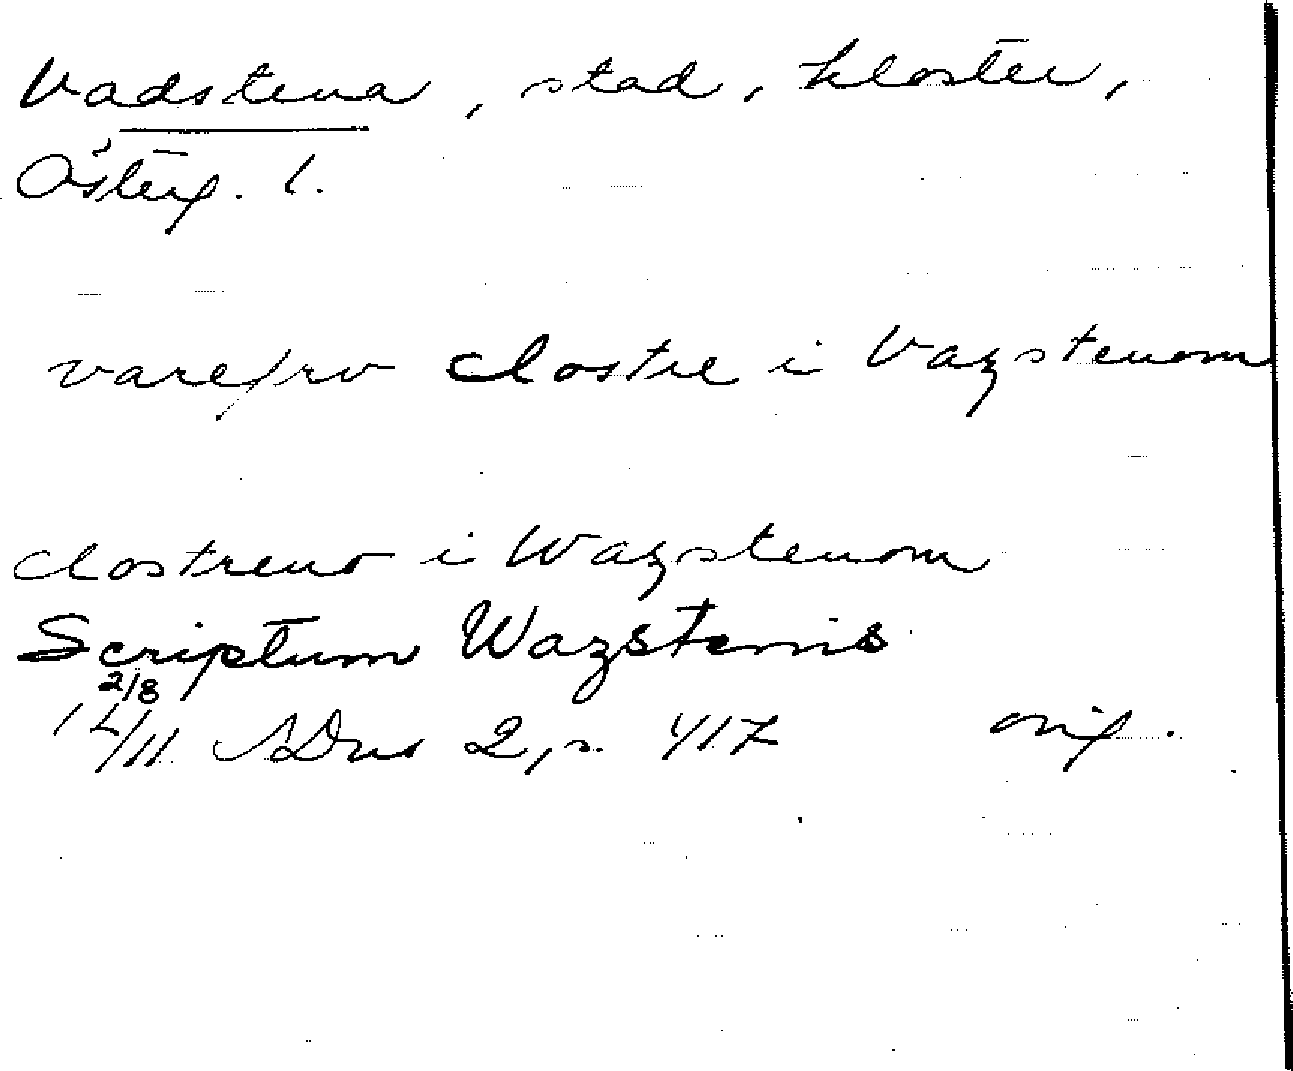 Vadstena, stad, kloster,
Österg. l.
varefrv clostre i Vazstenom
clostreno i Wazstenom
Scriptum Wazstenis
2/8
14/11 SDns 2, s. 417 orig.